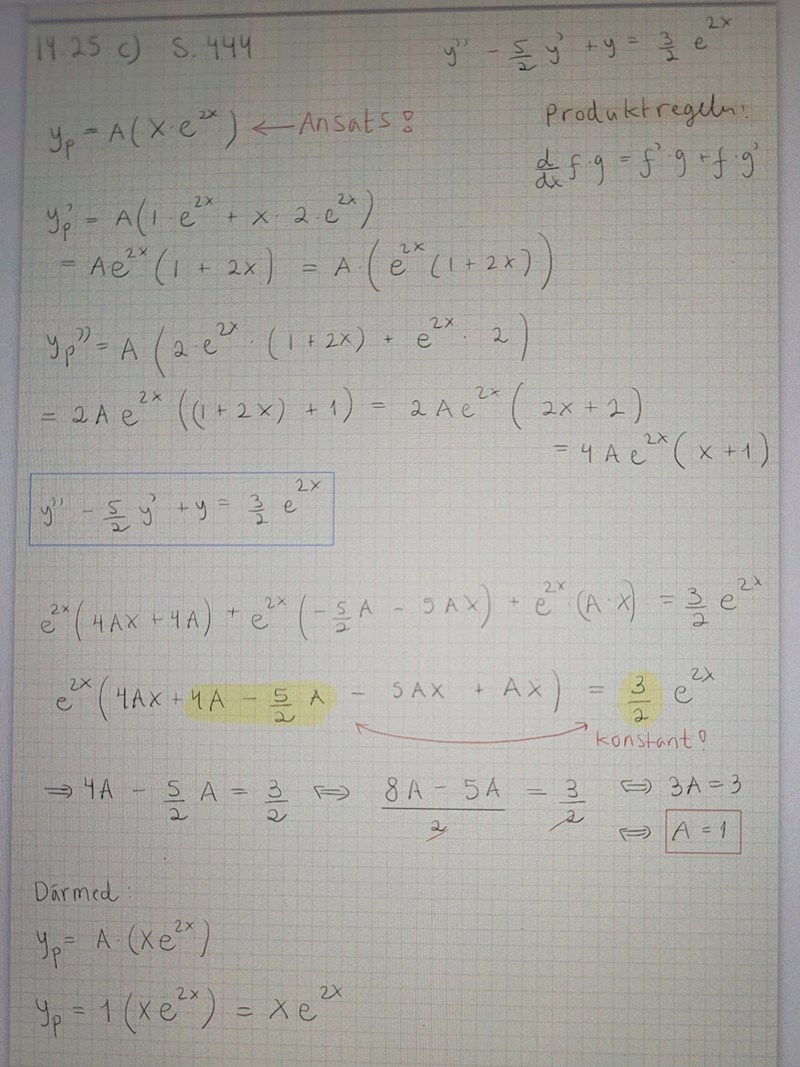 14.25 c) S. 444 y'' - 5/2 y' + y = 3/2 e^2x
y_p = A(x·e^2x) ← Ansats!
Produktregeln:
d/dx f·g = f'·g + f·g'
y_p' = A(1·e^2x + x·2·e^2x)
= Ae^2x(1 + 2x) = A·(e^2x(1+2x))
y_p'' = A(2·e^2x·(1+2x) + e^2x·2)
= 2Ae^2x((1+2x)+1) = 2Ae^2x(2x+2)
= 4Ae^2x(x+1)
y'' - 5/2 y' + y = 3/2 e^2x
e^2x(4Ax+4A) + e^2x(-5/2 A - 5Ax) + e^2x·(A·x) = 3/2 e^2x
e^2x(4Ax + 4A - 5/2 A - 5Ax + Ax) = 3/2 e^2x
konstant!
⇒ 4A - 5/2 A = 3/2 ⇔ (8A - 5A)/2 = 3/2 ⇔ 3A = 3
⇔ A = 1
Därmed:
y_p = A·(xe^2x)
y_p = 1(xe^2x) = xe^2x